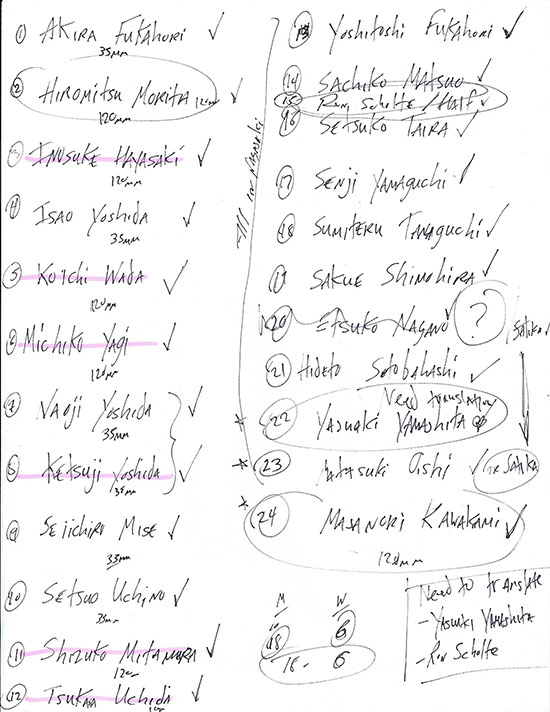 1 AKIRA FUKAHORI ✓
35mm
2 HIROMITSU MORITA 120mm ✓
120mm
3 INOSUKE HAYASAKI ✓
120mm
4 ISAO YOSHIDA ✓
35mm
5 KOICHI WADA ✓
120mm
6 MICHIKO YAGI ✓
120mm
7 NAOJI YOSHIDA ✓
35mm
8 KETSUJI YOSHIDA ✓
35mm
9 SEIICHIRO MISE ✓
35mm
10 SETSUO UCHINO ✓
35mm
11 SHIZUKO MITAMURA ✓
120mm
12 TSUKAA UCHIDA ✓
120mm
All in Nagasaki
13 YOSHITOSHI FUKAHORI ✓
14 SACHIKO MATSUO ✓
15 Ron Scholte / Half ✓
16 SETSUKO TAIRA ✓
17 SENJI YAMAGUCHI ✓
18 SUMITERU TANAGUCHI ✓
19 SAKUE SHIMOHIRA ✓
20 ETSUKO NAGANO ✓ ?
21 HIDETO SOTOBAHASHI ✓
Need translation
* 22 YASUAKI YAMASHITA
* 23 MATASUKI OISHI ✓
* 24 MASANORI KAWAKAMI ✓
120mm
M W
18 6
18 - 6
Need to translate
- YASUAKI YAMASHITA
- Ron Scholte